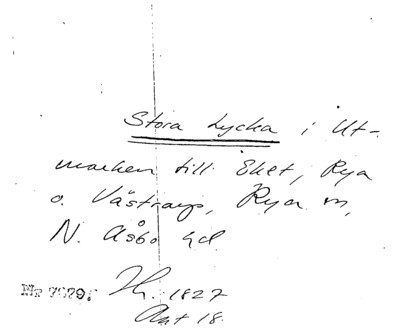 Stora Lycka i Ut-
marken till Eket, Rya
o. Västraps, Rya sn,
N. Åsbo hd
1827
Akt 18.